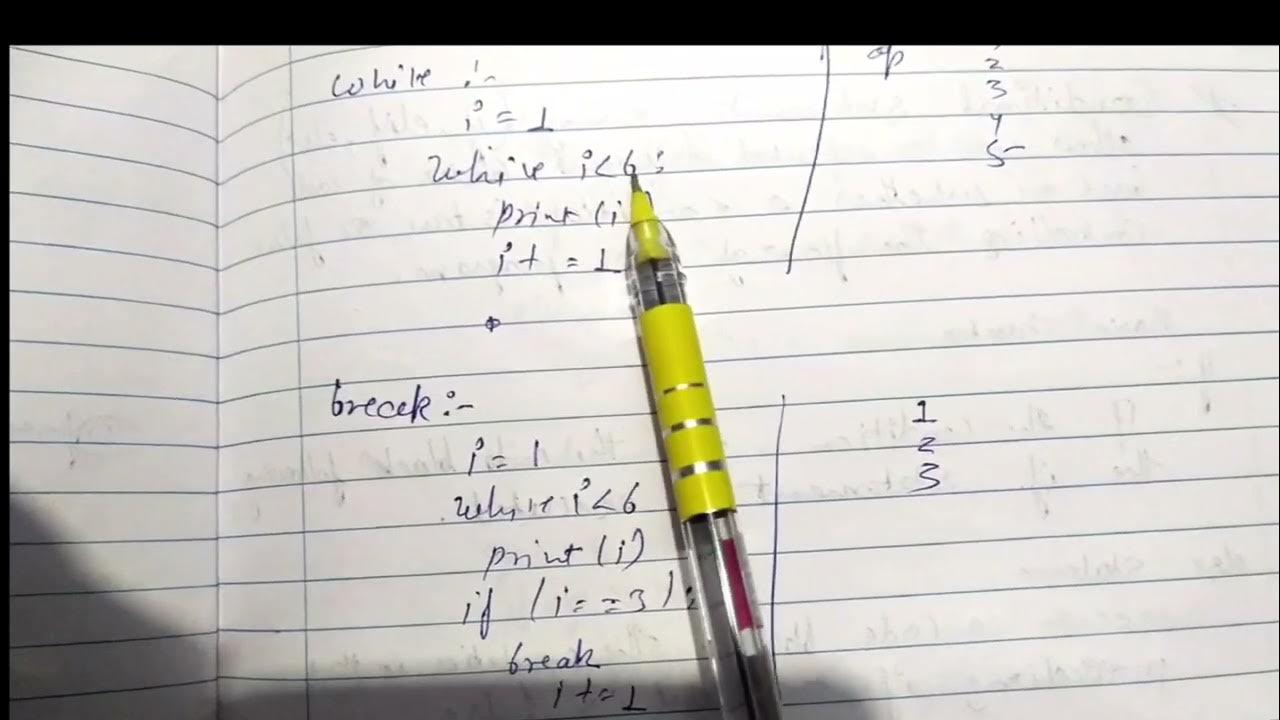 while :-
i = 1
while i<6 :
print (i
i + = 1
op
2
3
4
5
break :-
i = 1
while i<6
print (i)
if (i==3) :
break
i+=1
1
2
3